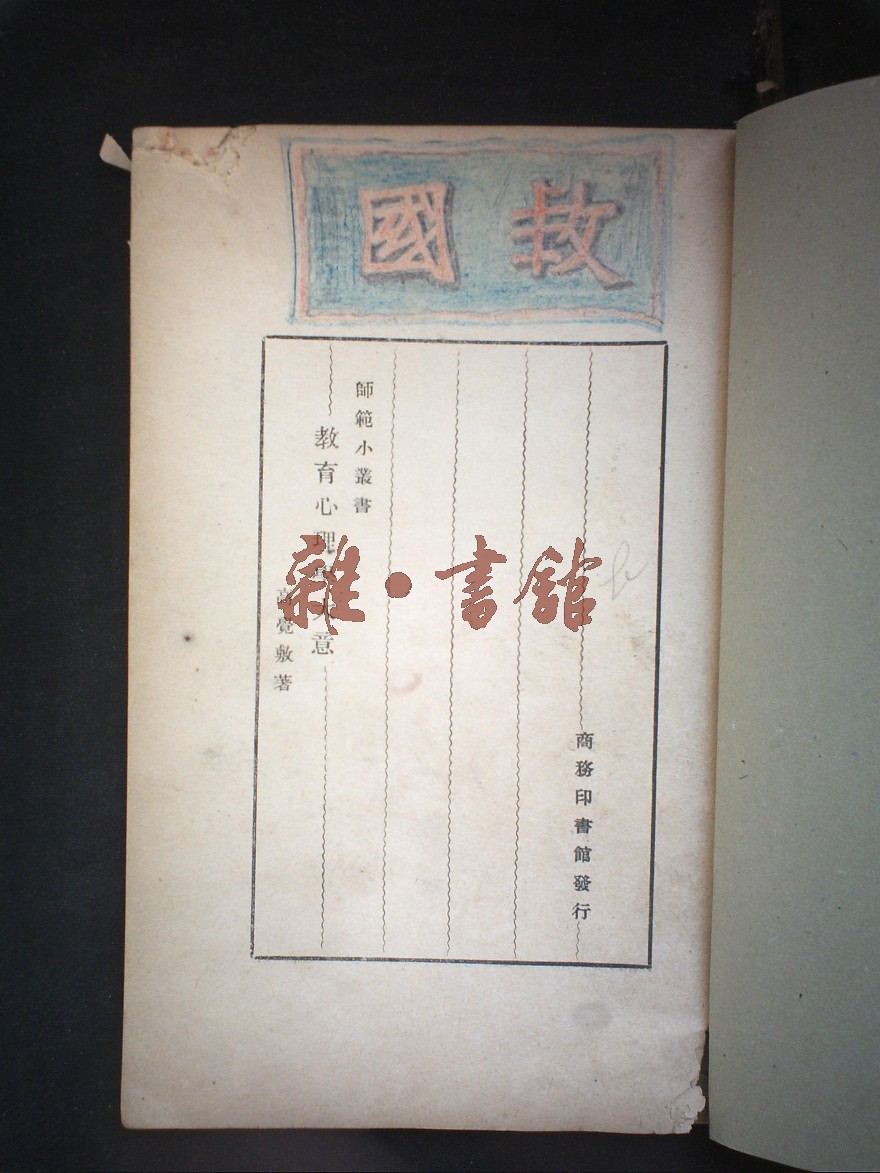 救國
師範小叢書
教育心理學大意
高覺敷著
商務印書館發行
雜·書館